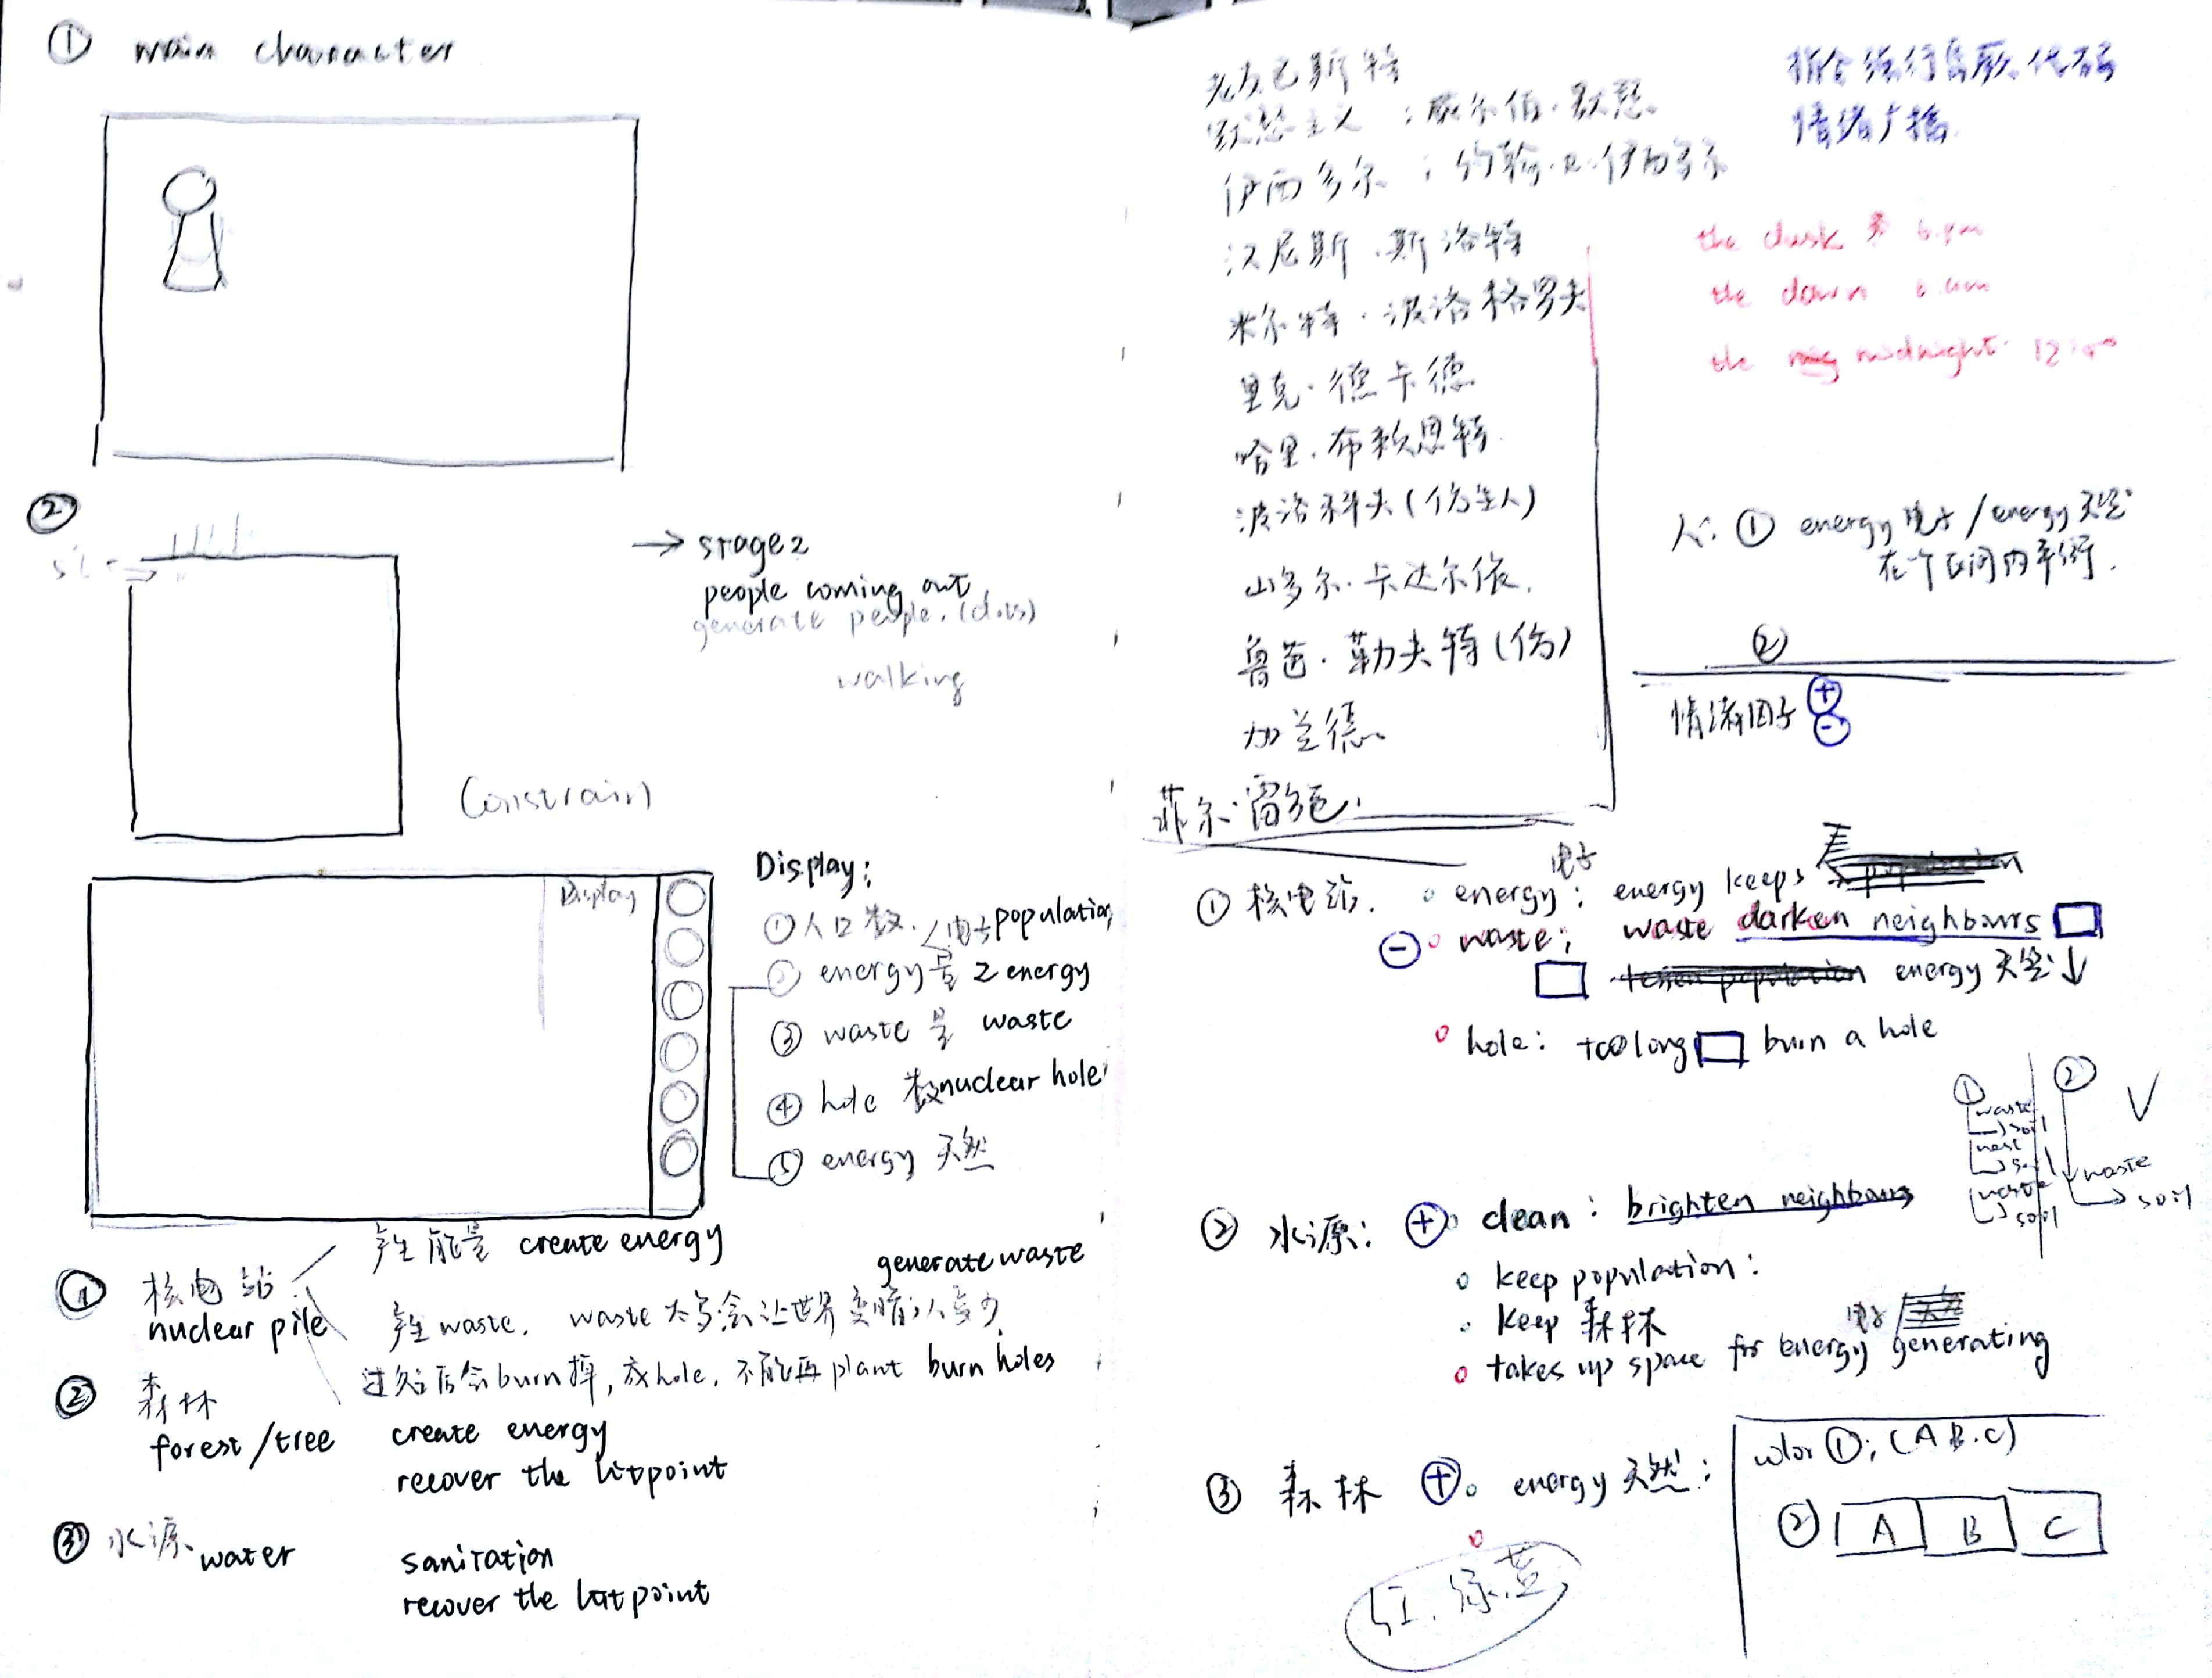 ① main character
②
→ stage 2
people coming out
generate people. (dots)
walking
Constrain
Display
Display:
① 人口数. 电子 population
② energy量 2 energy
③ waste 量 waste
④ hole 数 nuclear hole
⑤ energy 天然
① 核电站 产生能量 create energy
nuclear pile
generate waste
产生waste. waste 太多会让世界变暗,人变少
过久后会burn掉,成hole,不能再plant burn holes
② 森林
forest/tree create energy
recover the litpoint
③ 水源 water sanitation
recover the litpoint
默瑟主义 : 威尔伯·默瑟
伊西多尔 : 约翰·R·伊西多尔
汉尼斯·斯洛特
米尔特·波洛格罗夫
里克·德卡德
哈里·布赖恩特
波洛科夫(仿生人)
山多尔·卡达尔依.
鲁芭·勒夫特(仿)
加兰德
菲尔·雷施
代码
情绪广播
the dusk 6 pm
the dawn 6 am
the midnight 12:00
人: ① energy 电子/energy 天然
在个区间内平衡.
②
情绪因子 + -
① 核电站. 电子
energy: energy keeps
- waste: waste darken neighbours
energy 天然↓
hole: too long burn a hole
① waste
soil
waste
soil
waste
soil
② V
waste
soil
② 水源: + clean: brighten neighbours
keep population:
keep 森林
takes up space for energy 电子 generating
③ 森林 + energy 天然:
红.绿.蓝
color ①: (A B.C)
② A B C